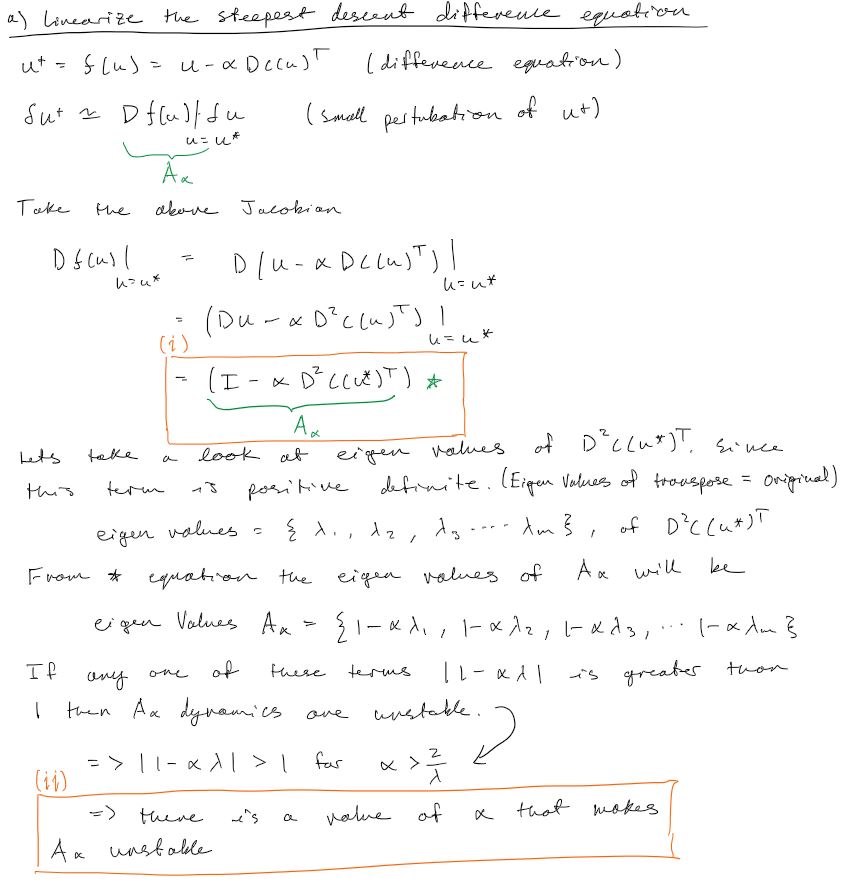 a) Linearize the steepest descent difference equation
u⁺ = f(u) = u - α Dc(u)ᵀ (difference equation)
δu⁺ ≃ Df(u)|u=u* δu (small pertubation of u⁺)
Aα
Take the above Jacobian
Df(u)|u=u* = D(u - α Dc(u)ᵀ)|u=u*
= (Du - α D²c(u)ᵀ)|u=u*
(i)
= (I - α D²c(u*)ᵀ) *
Aα
Lets take a look at eigen values of D²c(u*)ᵀ, since
this term is positive definite. (Eigen Values of transpose = original)
eigen values = {λ₁, λ₂, λ₃ ---- λm}, of D²c(u*)ᵀ
From * equation the eigen values of Aα will be
eigen Values Aα = {1-αλ₁, 1-αλ₂, 1-αλ₃, ... 1-αλm}
If any one of these terms |1-αλ| is greater than
1 then Aα dynamics are unstable.
=> |1-αλ| > 1 for α > 2/λ
(ii)
=> there is a value of α that makes
Aα unstable